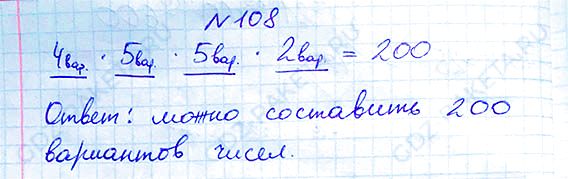 №108
4вар. · 5вар. · 5вар. · 2вар. = 200
Ответ: можно составить 200
вариантов чисел.